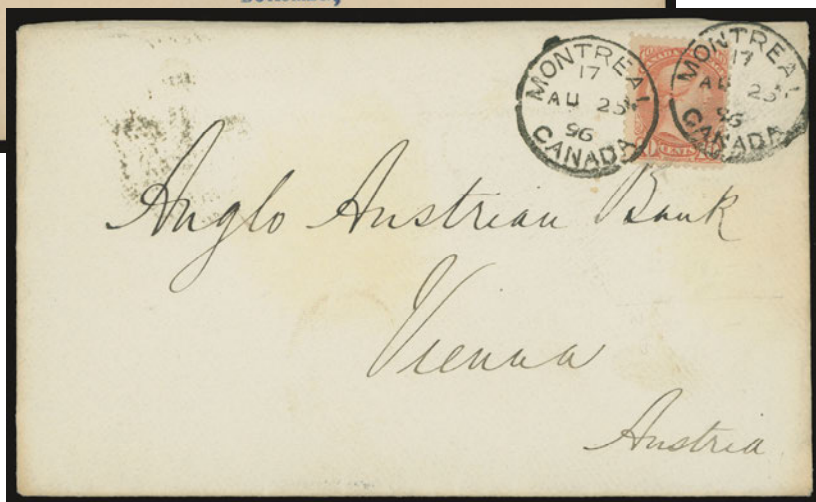 MONTREAL
17
AU 25
96
CANADA
MONTREAL
17
AU 25
96
CANADA
CENTS
Anglo Austrian Bank
Vienna
Austria